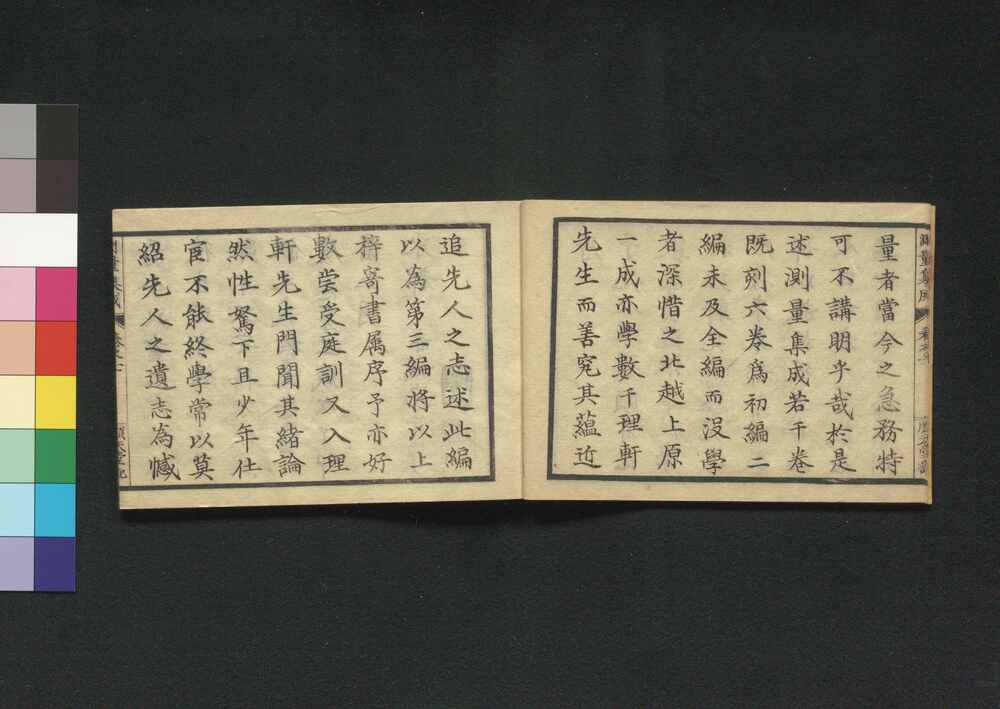 量者當今之急務特
可不講明乎哉於是
述測量集成若干卷
既刻六卷爲初編二
編未及全編而沒學
者深惜之北越上原
一成亦學數于理軒
先生而善究其蘊近
追先人之志述此編
以為第三編將以上
梓寄書属序予亦好
數嘗受庭訓又入理
軒先生門聞其緒論
然性駑下且少年仕
宦不能終學常以莫
紹先人之遺志為憾